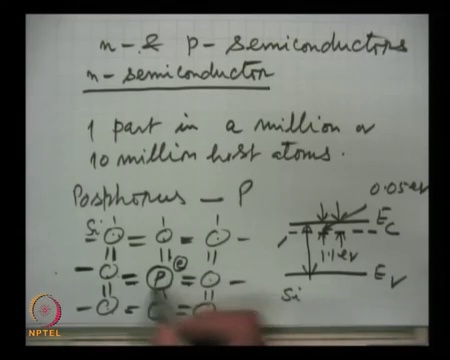 n- & p- semiconductors
n- semiconductor
1 part in a million or
10 million host atoms.
Posphorus - P
0.05 eV
Si
e
P
Ec
1.1 eV
Ev
Si
NPTEL